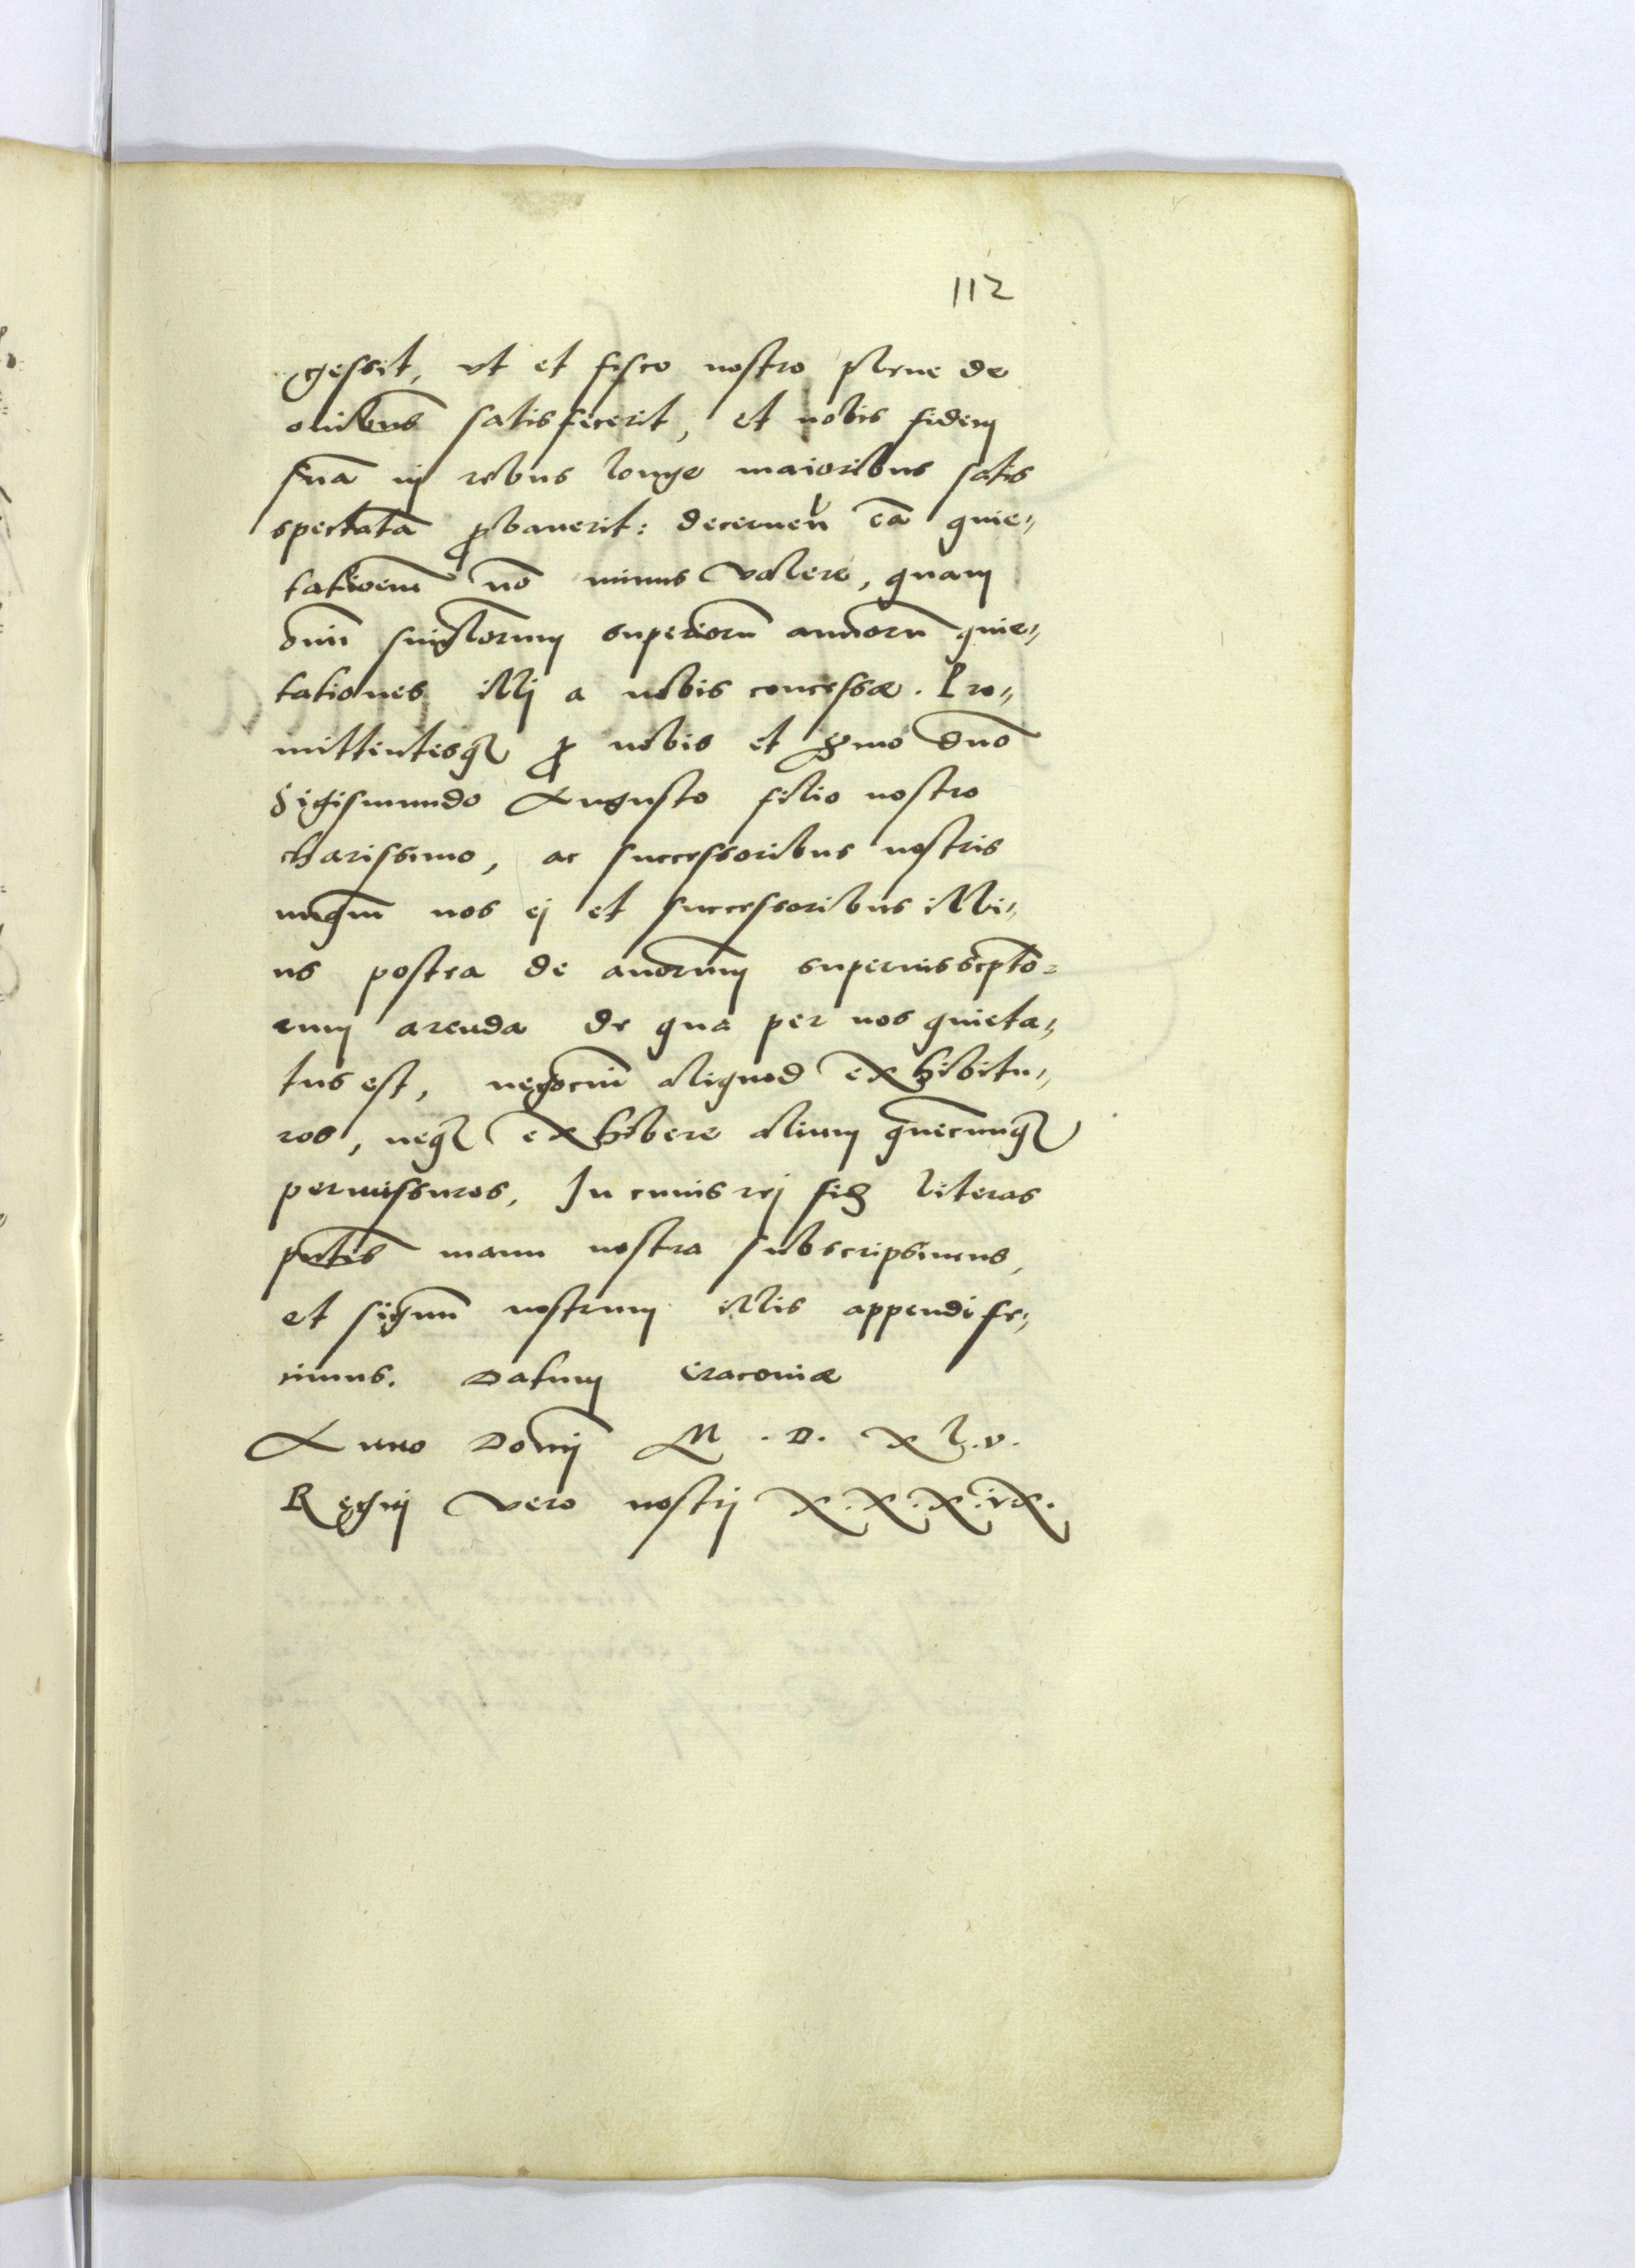 112
gessit, ut et fisco nostro plene de
oĩbus satisfecerit, et nobis fidem
suã in rebus longe maioribus satis
spectatã ꝓbauerit: decernen̄ eã quie„
tationem̃ nõ minus valere, quam
om̃ superiorũ annorũ quie„
tationes illi a nobis concessæ. Pro„
mittentesqꝫ ꝓ nobis et smo dño
Sigismundo Augusto filio nostro
charissimo, ac successoribus nostris
nunqm̃ nos ei et successoribus illi„
us postea de annorum supernisscpto=
rum arenda de qua per nos quieta„
tus est, negocium̃ aliquod exhibitu„
ros, neqꝫ exhibere alium quecunqꝫ
permissuros. In cuius rei fidꝫ literas
pñtes manu nostra subscripsimus,
et sigum̃ nostrum illis appendi fe„
cimus. Datum Cracouiæ
Anno Domi̅ M . D . X L . V .
Regni vero nostri X . X . X . IX .